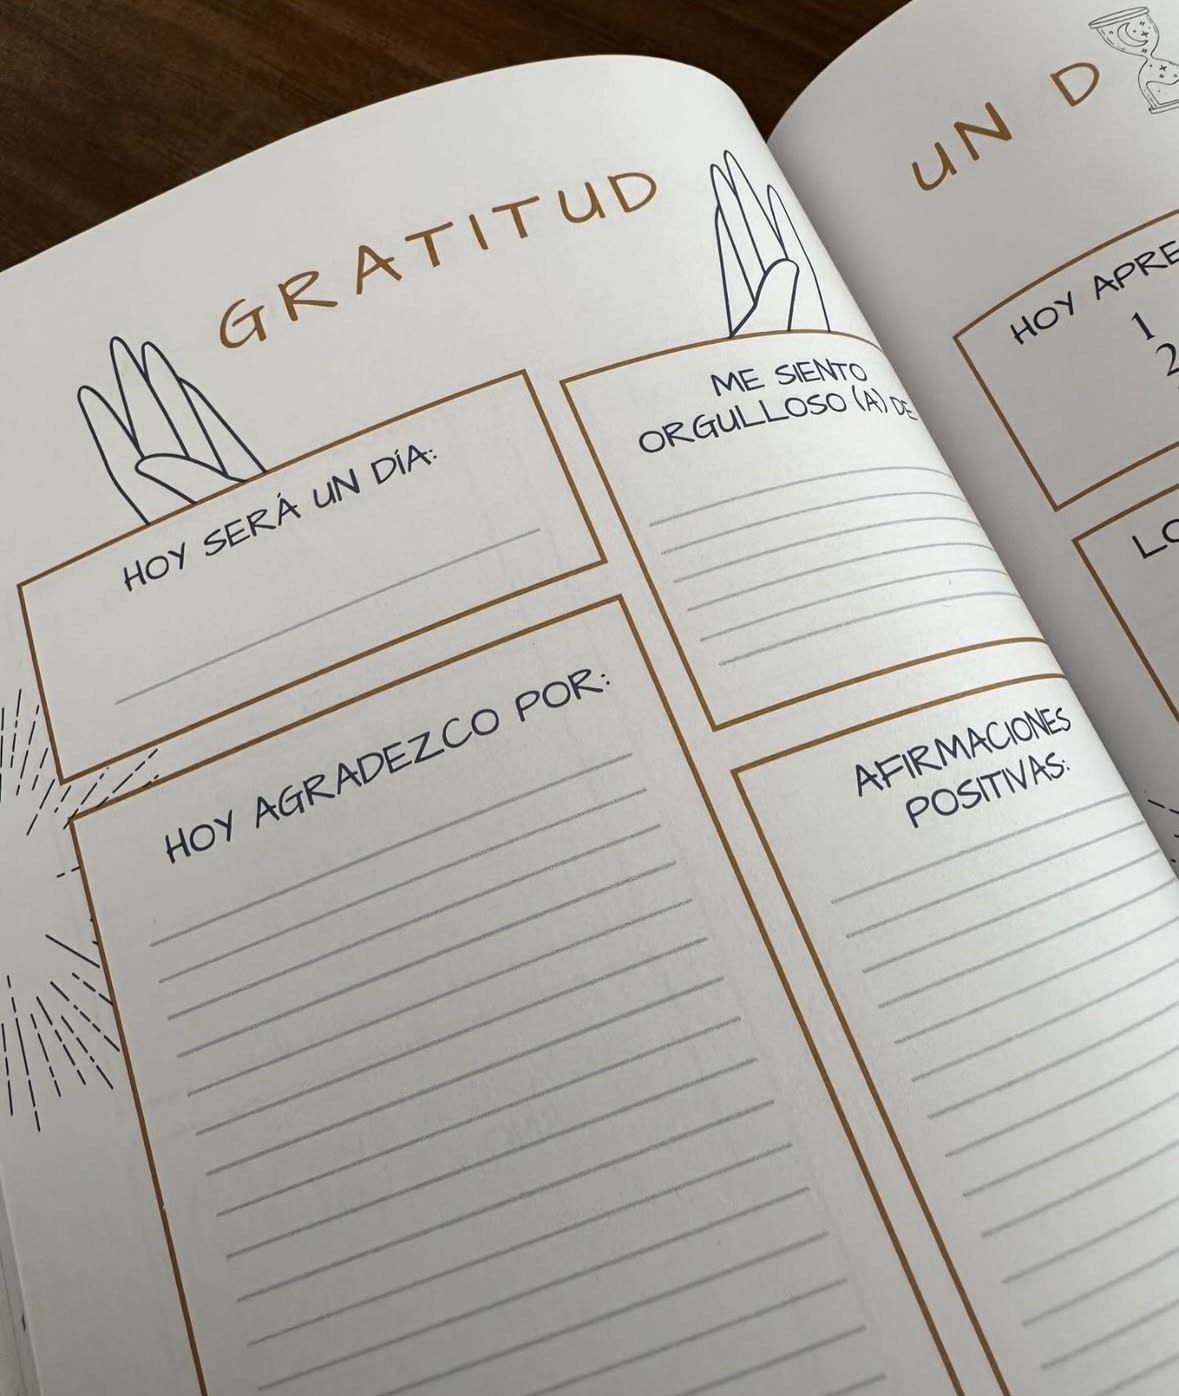 GRATITUD
HOY SERÁ UN DÍA:
HOY AGRADEZCO POR:
ME SIENTO
ORGULLOSO (A) DE
AFIRMACIONES
POSITIVAS:
UN D
HOY APRE
1
2
LO